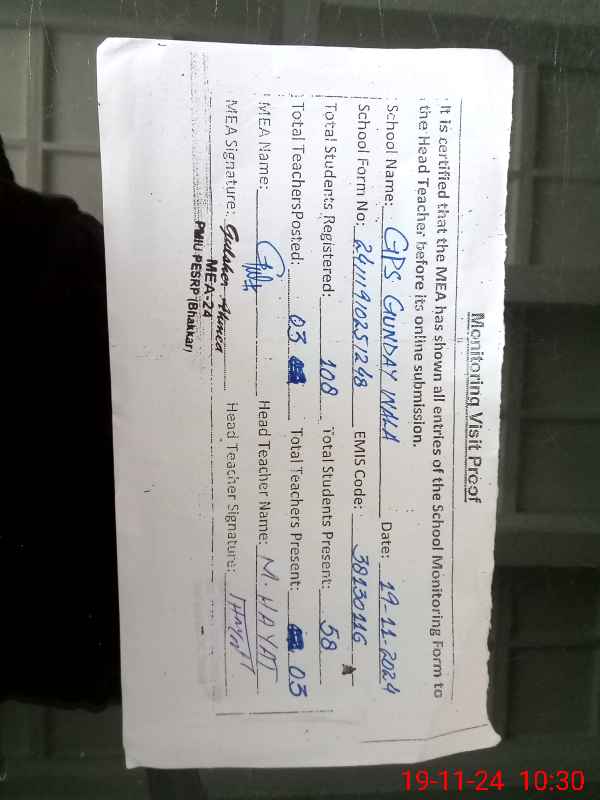 Monitoring Visit Proof
It is certified that the MEA has shown all entries of the School Monitoring Form to
the Head Teacher before its online submission.
School Name: GPS GUNDAY WALA Date: 19-11-2024
School Form No: 24111910251248 EMIS Code: 38130116
Total Students Registered: 108 Total Students Present: 58
Total TeachersPosted: 03 Total Teachers Present: 03
MEA Name: Head Teacher Name: M. HAYAT
MEA Signature: Gulsher Ahmed Head Teacher Signature: Hayat
MEA-24
PMIU-PESRP (Bhakkar)
19-11-24 10:30